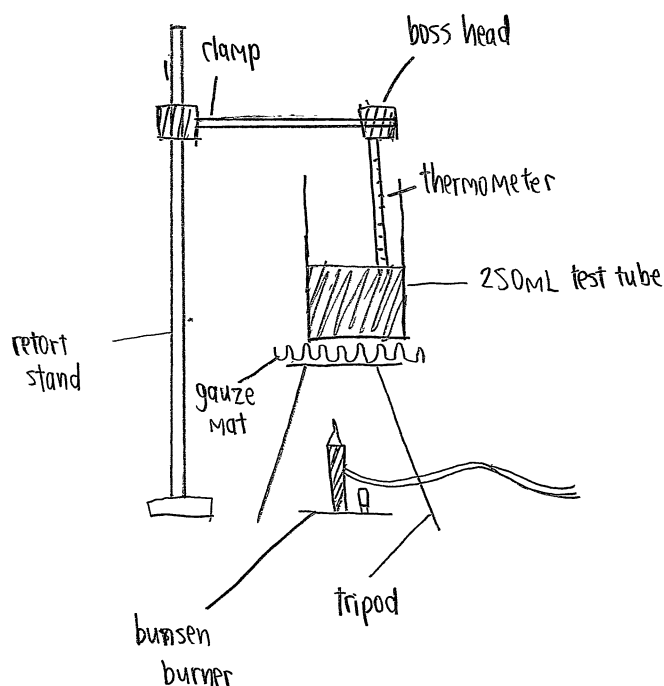 clamp
boss head
thermometer
250mL test tube
retort
stand
gauze
mat
tripod
bunsen
burner